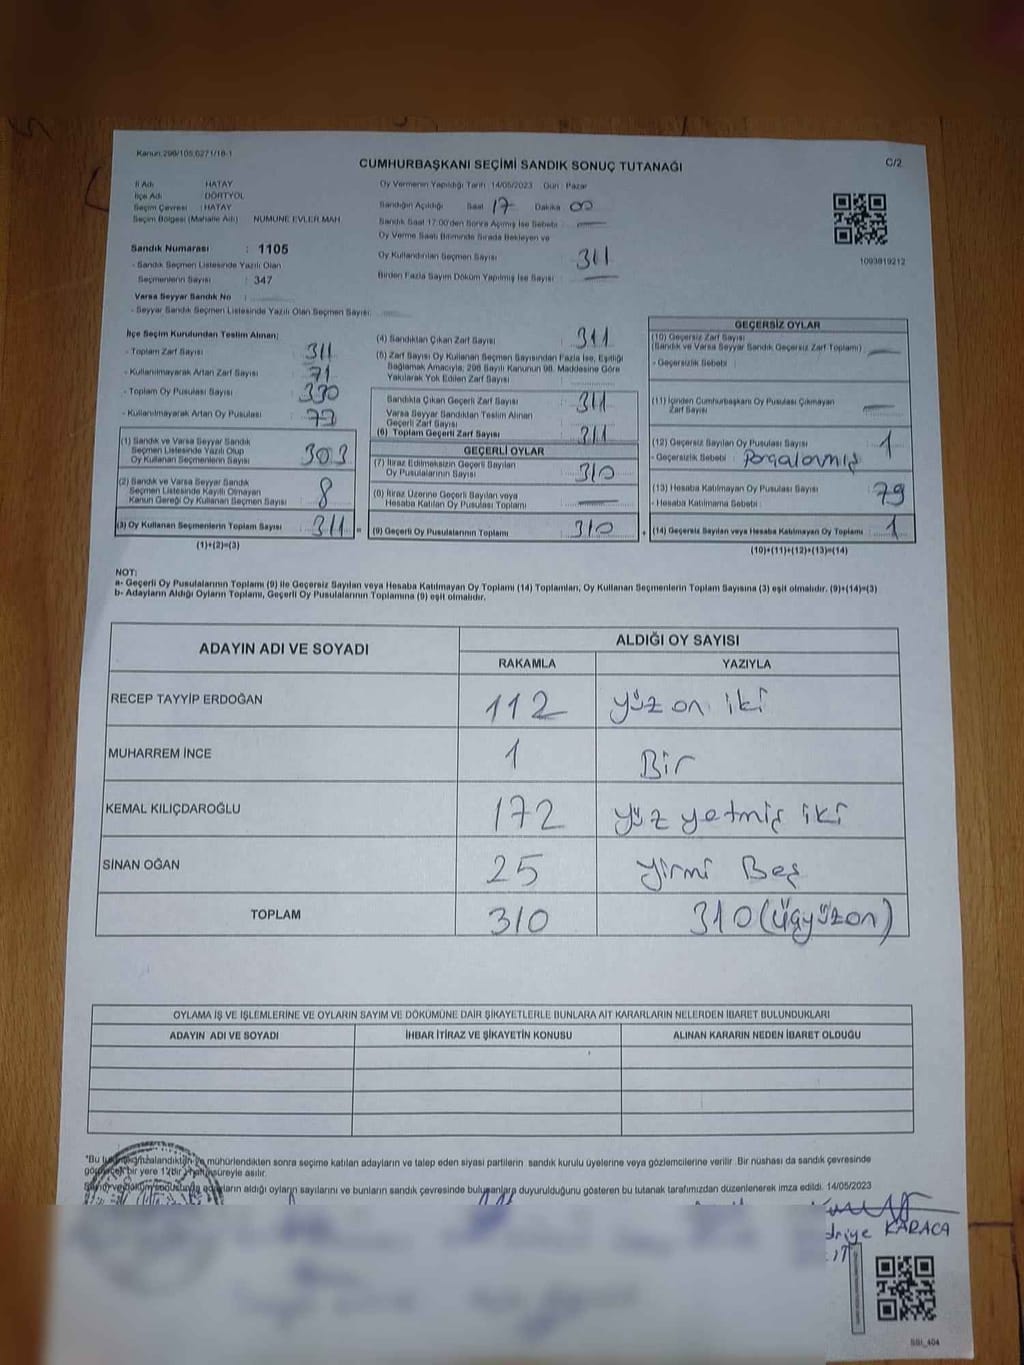 Kanun:298/105,6271/18-1
C/2
CUMHURBAŞKANI SEÇİMİ SANDIK SONUÇ TUTANAĞI
İl Adı : HATAY
İlçe Adı : DÖRTYOL
Seçim Çevresi : HATAY
Seçim Bölgesi (Mahalle Adı) NUMUNE EVLER MAH
Sandık Numarası : 1105
- Sandık Seçmen Listesinde Yazılı Olan
Seçmenlerin Sayısı : 347
Varsa Seyyar Sandık No :
- Seyyar Sandık Seçmen Listesinde Yazılı Olan Seçmen Sayısı:
Oy Vermenin Yapıldığı Tarih :14/05/2023 Gün : Pazar
Sandığın Açıldığı Saat 17 Dakika 00
Sandık Saat 17:00'den Sonra Açmış İse Sebebi : —
Oy Verme Saati Bitiminde Sırada Bekleyen ve
Oy Kullandırılan Seçmen Sayısı : 311
Birden Fazla Sayım Döküm Yapılmış İse Sayısı : —
1093819212
İlçe Seçim Kurulundan Teslim Alınan;
- Toplam Zarf Sayısı : 311
- Kullanılmayarak Artan Zarf Sayısı : 71
- Toplam Oy Pusulası Sayısı
- Kullanılmayarak Artan Oy Pusulası :
(1) Sandık ve Varsa Seyyar Sandık
Seçmen Listesinde Yazılı Olup
Oy Kullanan Seçmenlerin Sayısı : 303
(2) Sandık ve Varsa Seyyar Sandık
Seçmen Listesinde Kayıtlı Olmayan
Kanun Gereği Oy Kullanan Seçmen Sayısı : 8
(3) Oy Kullanan Seçmenlerin Toplam Sayısı : 311
(1)+(2)=(3)
(4) Sandıktan Çıkan Zarf Sayısı : 311
(5) Zarf Sayısı Oy Kullanan Seçmen Sayısından Fazla İse, Eşitliği
Sağlamak Amacıyla, 298 Sayılı Kanunun 98. Maddesine Göre
Yakılarak Yok Edilen Zarf Sayısı :
Sandıkta Çıkan Geçerli Zarf Sayısı : 311
Varsa Seyyar Sandıktan Teslim Alınan
Geçerli Zarf Sayısı :
(6) Toplam Geçerli Zarf Sayısı : 311
GEÇERLİ OYLAR
(7) İtiraz Edilmeksizin Geçerli Sayılan
Oy Pusulalarının Sayısı : 310
(8) İtiraz Üzerine Geçerli Sayılan veya
Hesaba Katılan Oy Pusulası Toplamı : —
(9) Geçerli Oy Pusulalarının Toplamı : 310
GEÇERSİZ OYLAR
(10) Geçersiz Zarf Sayısı
(Sandık ve Varsa Seyyar Sandık Geçersiz Zarf Toplamı) : —
- Geçersizlik Sebebi :
(11) İçinden Cumhurbaşkanı Oy Pusulası Çıkmayan
Zarf Sayısı : —
(12) Geçersiz Sayılan Oy Pusulası Sayısı : 1
- Geçersizlik Sebebi :
(13) Hesaba Katılmayan Oy Pusulası Sayısı : 79
- Hesaba Katılmama Sebebi :
(14) Geçersiz Sayılan veya Hesaba Katılmayan Oy Toplamı : 1
(10)+(11)+(12)+(13)=(14)
NOT:
a- Geçerli Oy Pusulalarının Toplamı (9) ile Geçersiz Sayılan veya Hesaba Katılmayan Oy Toplamı (14) Toplamları, Oy Kullanan Seçmenlerin Toplam Sayısına (3) eşit olmalıdır. (9)+(14)=(3)
b- Adayların Aldığı Oyların Toplamı, Geçerli Oy Pusulalarının Toplamına (9) eşit olmalıdır.
ADAYIN ADI VE SOYADI ALDIĞI OY SAYISI
RAKAMLA YAZIYLA
RECEP TAYYİP ERDOĞAN 112 yüz on iki
MUHARREM İNCE 1 Bir
KEMAL KILIÇDAROĞLU 172 yüz yetmiş iki
SİNAN OĞAN 25 yirmi Beş
TOPLAM 310 310 (üçyüzon)
OYLAMA İŞ VE İŞLEMLERİNE VE OYLARIN SAYIM VE DÖKÜMÜNE DAİR ŞİKAYETLERLE BUNLARA AİT KARARLARIN NELERDEN İBARET BULUNDUKLARI
ADAYIN ADI VE SOYADI İHBAR İTİRAZ VE ŞİKAYETİN KONUSU ALINAN KARARIN NEDEN İBARET OLDUĞU
"Bu mühürlendikten sonra seçime katılan adayların ve talep eden siyasi partilerin sandık kurulu üyelerine veya gözlemcilerine verilir .Bir nüshası da sandık çevresinde
bir yere süreyle asılır.
aldığı oyların sayılarını ve bunların sandık çevresinde bulunanlara duyurulduğunu gösteren bu tutanak tarafımızdan düzenlenerek imza edildi. 14/05/2023
driye KARACA
SSI_404